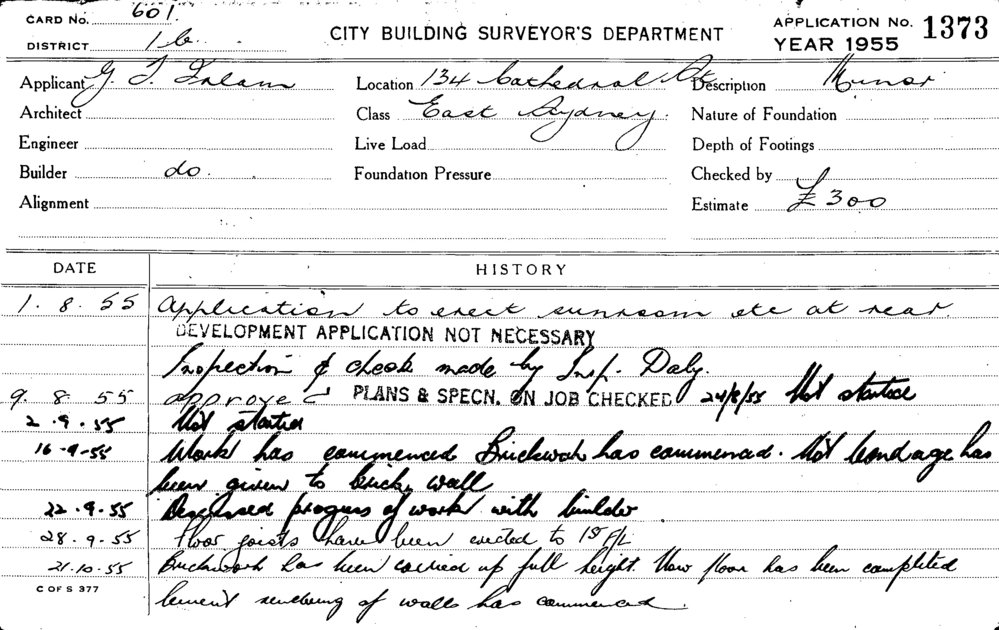 CARD No. 601.
DISTRICT 1b.
CITY BUILDING SURVEYOR'S DEPARTMENT
APPLICATION No. 1373
YEAR 1955
Applicant G. T.
Location 134 Cathedral St
Description Minor
Architect
Class East Sydney.
Nature of Foundation
Engineer
Live Load
Depth of Footings
Builder do.
Foundation Pressure
Checked by
Alignment
Estimate £300
DATE HISTORY
1. 8. 55 Application to erect sunroom etc at rear.
DEVELOPMENT APPLICATION NOT NECESSARY
Inspection & check made by Insp. Daly.
9. 8. 55 approved PLANS & SPECN. ON JOB CHECKED 24/8/55 Not started
2. 9. 55 Not started
16-9-55 Work has commenced Brickwork has commenced. Not bondage has
been given to brick wall
22. 9. 55 Discussed progress of work with builder
28. 9. 55 Floor joists have been erected to 1st F/L
21. 10. 55 Brickwork has been carried up full height. New floor has been completed
C OF S 377
Cement rendering of walls has commenced.